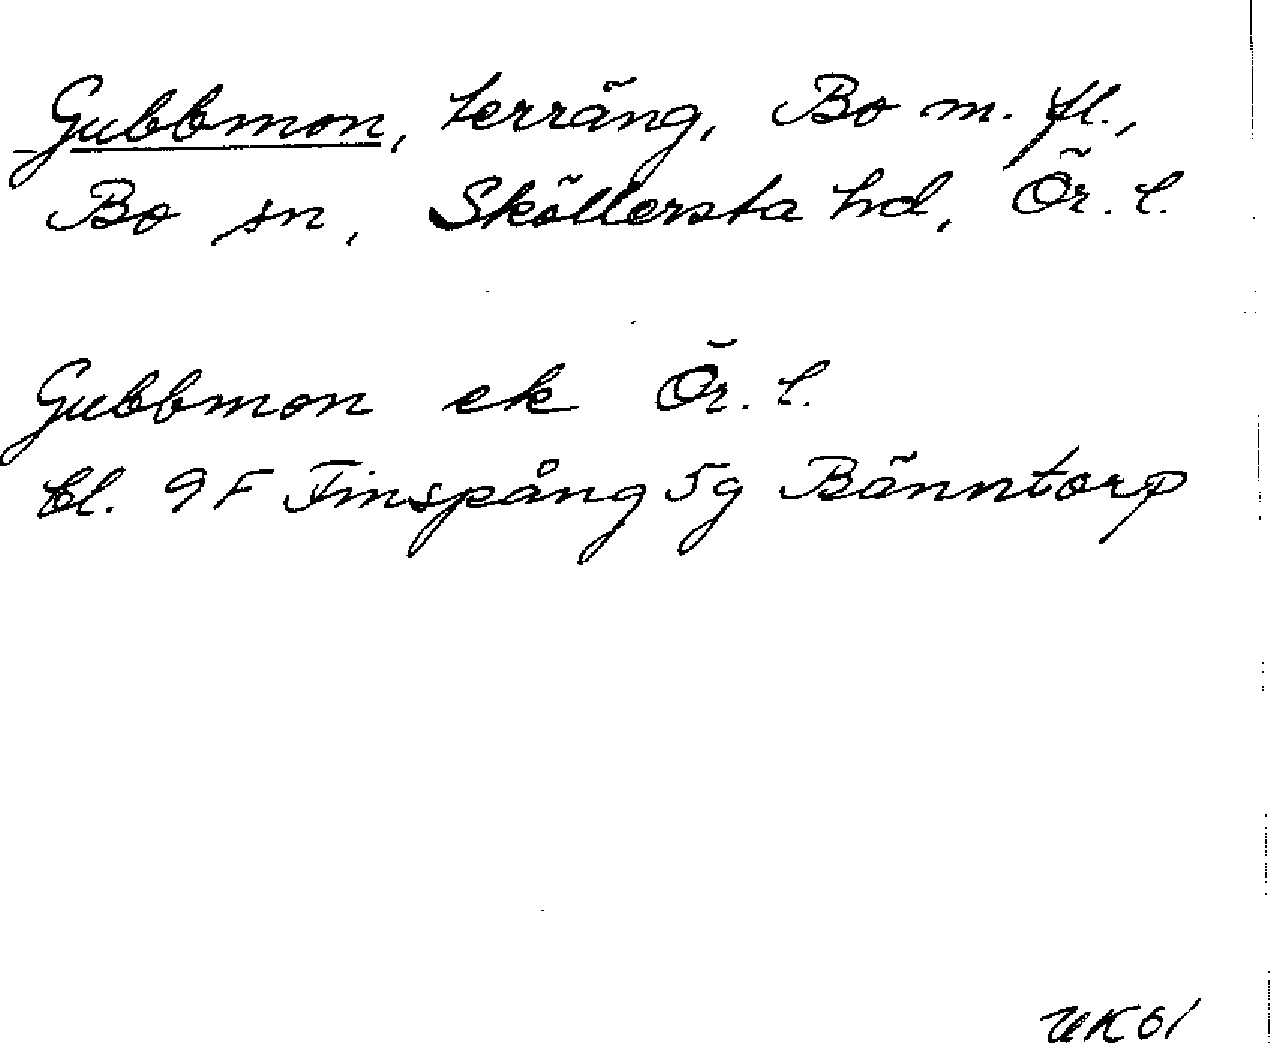 Gubbmon, terräng, Bo m. fl.,
Bo sn, Sköllersta hd, Ör. l.
Gubbmon ek Ör. l.
bl. 9F Finspång 5g Bänntorp
UK 61